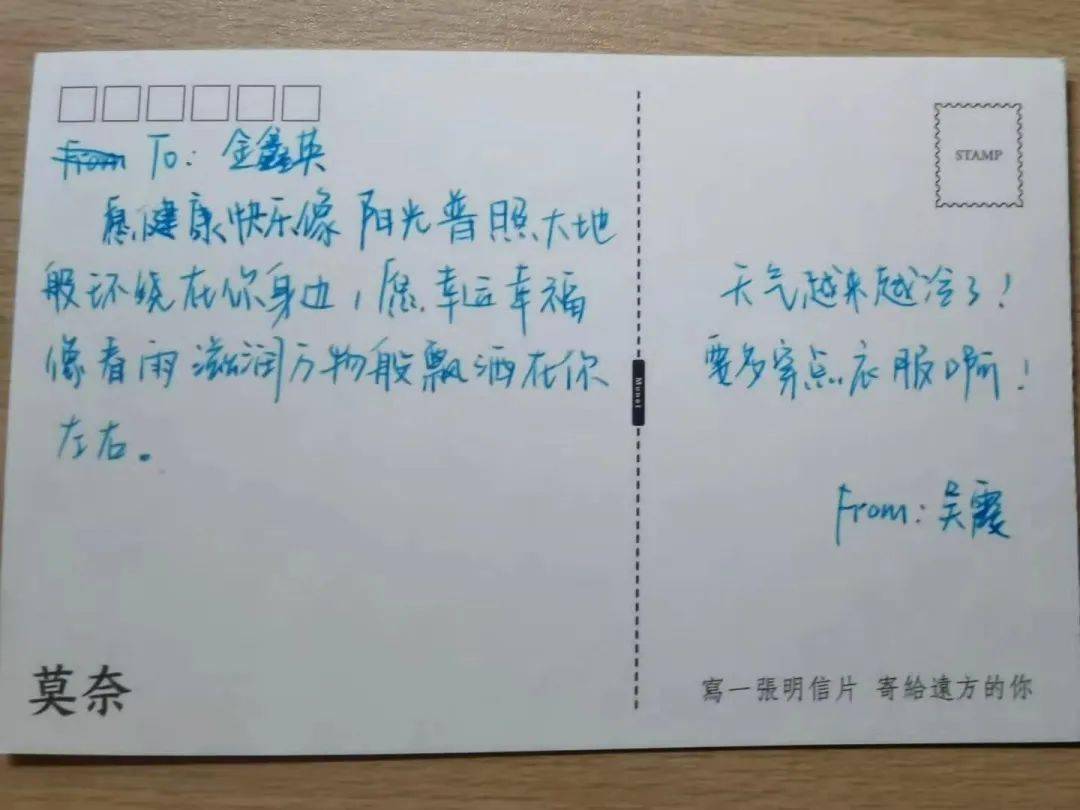 From To: 金鑫英
愿健康快乐像阳光普照大地
般环绕在你身边，愿幸运幸福
像春雨滋润万物般飘洒在你
左右。
STAMP
天气越来越冷了！
要多穿点衣服啊！
From: 吴霞
Monet
莫奈
寫一張明信片 寄給遠方的你